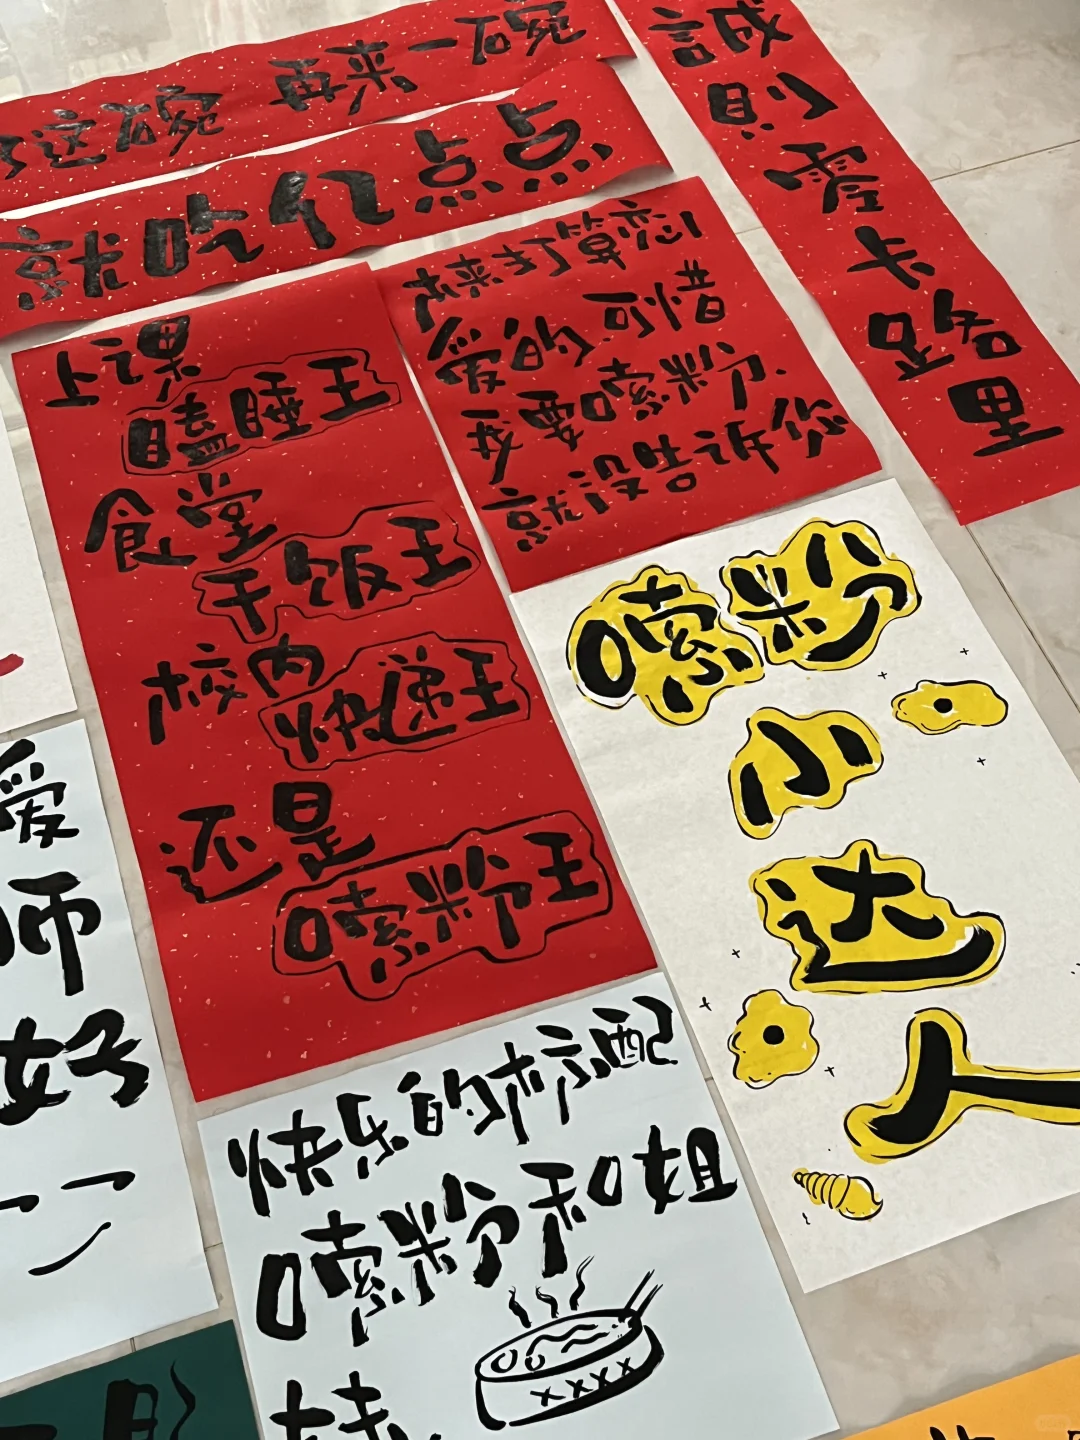 这碗 再来一碗
就吃亿点点
誠則靈卡路里
上课
瞌睡王
食堂
干饭王
校内
快递王
还是
嗦粉王
本来打算恋
爱的 可惜
我要嗦粉
就没告诉你
嗦粉
小
达
人
爱
师
好
快乐的标配
嗦粉和姐
妹